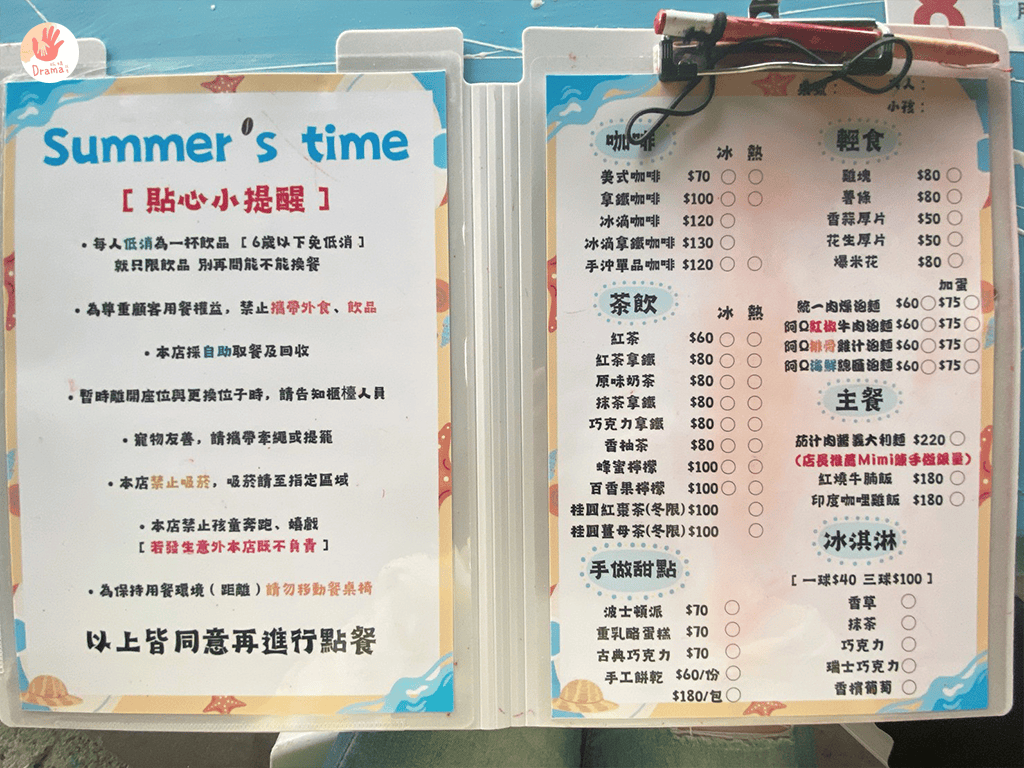 Drama
Summer's time
[ 貼心小提醒 ]
•每人低消為一杯飲品 [ 6歲以下免低消 ]
就只限飲品 別再問能不能換餐
•為尊重顧客用餐權益，禁止攜帶外食、飲品
•本店採自助取餐及回收
•暫時離開座位與更換位子時，請告知櫃檯人員
•寵物友善，請攜帶牽繩或提籠
•本店禁止吸菸，吸菸請至指定區域
•本店禁止孩童奔跑、嬉戲
[ 若發生意外本店既不負責 ]
•為保持用餐環境 ( 距離 ) 請勿移動餐桌椅
以上皆同意再進行點餐
小孩：
咖啡
冰 熱
美式咖啡 $70
拿鐵咖啡 $100
冰滴咖啡 $120
冰滴拿鐵咖啡 $130
手沖單品咖啡 $120
茶飲
冰 熱
紅茶 $60
紅茶拿鐵 $80
原味奶茶 $80
抹茶拿鐵 $80
巧克力拿鐵 $80
香柚茶 $80
蜂蜜檸檬 $100
百香果檸檬 $100
桂圓紅棗茶(冬限) $100
桂圓薑母茶(冬限) $100
手做甜點
波士頓派 $70
重乳酪蛋糕 $70
古典巧克力 $70
手工餅乾 $60/份
$180/包
輕食
雞塊 $80
薯條 $80
香蒜厚片 $50
花生厚片 $50
爆米花 $80
加蛋
統一肉燥泡麵 $60 $75
阿Q紅椒牛肉泡麵 $60 $75
阿Q排骨雞汁泡麵 $60 $75
阿Q海鮮總匯泡麵 $60 $75
主餐
茄汁肉醬義大利麵 $220
(店長推薦Mimi姨手做限量)
紅燒牛腩飯 $180
印度咖哩雞飯 $180
冰淇淋
[ 一球$40 三球$100 ]
香草
抹茶
巧克力
瑞士巧克力
香檳葡萄